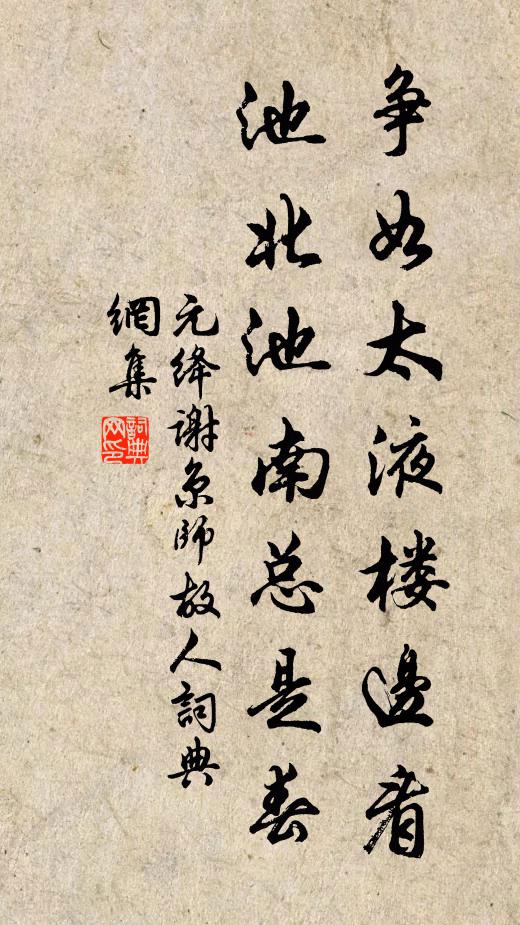 争如太液楼邊看
池北池南总是春
元绛谢京师故人詞典
網集
詞典網印